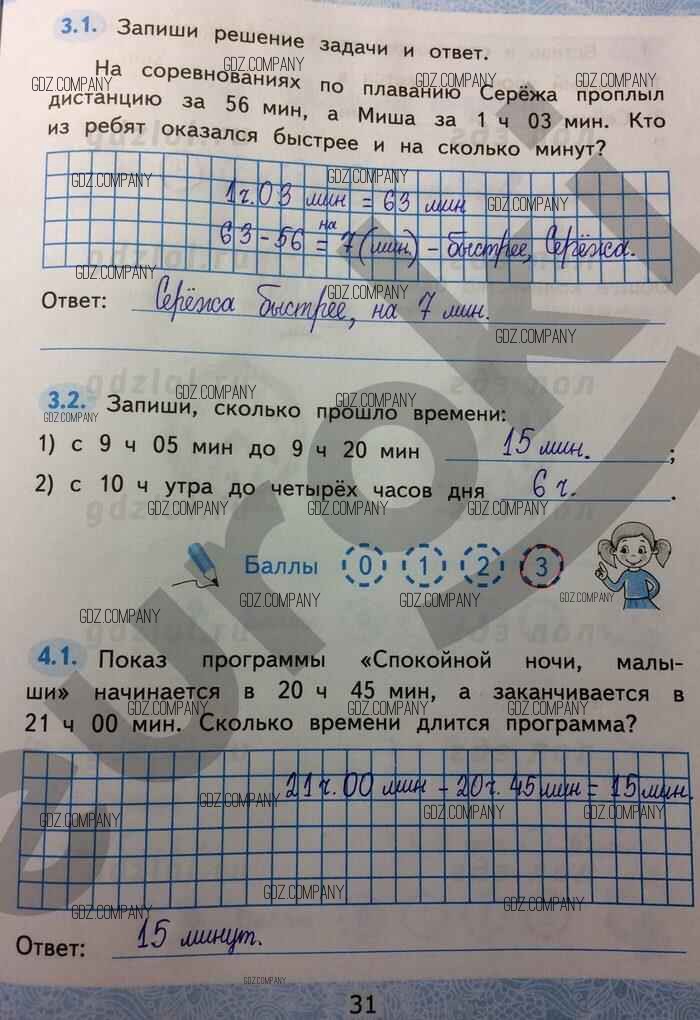 3.1. Запиши решение задачи и ответ.
На соревнованиях по плаванию Серёжа проплыл
дистанцию за 56 мин, а Миша за 1 ч 03 мин. Кто
из ребят оказался быстрее и на сколько минут?
1ч.03 мин = 63 мин
63-56 = на 7 (мин.) - быстрее, Серёжа.
Ответ: Серёжа быстрее, на 7 мин.
3.2. Запиши, сколько прошло времени:
1) с 9 ч 05 мин до 9 ч 20 мин 15 мин. ;
2) с 10 ч утра до четырёх часов дня 6 ч. .
Баллы 0 1 2 3
4.1. Показ программы «Спокойной ночи, малы-
ши» начинается в 20 ч 45 мин, а заканчивается в
21 ч 00 мин. Сколько времени длится программа?
21ч.00 мин - 20ч.45мин = 15 мин.
Ответ: 15 минут.
31
GDZ.COMPANY
euroki